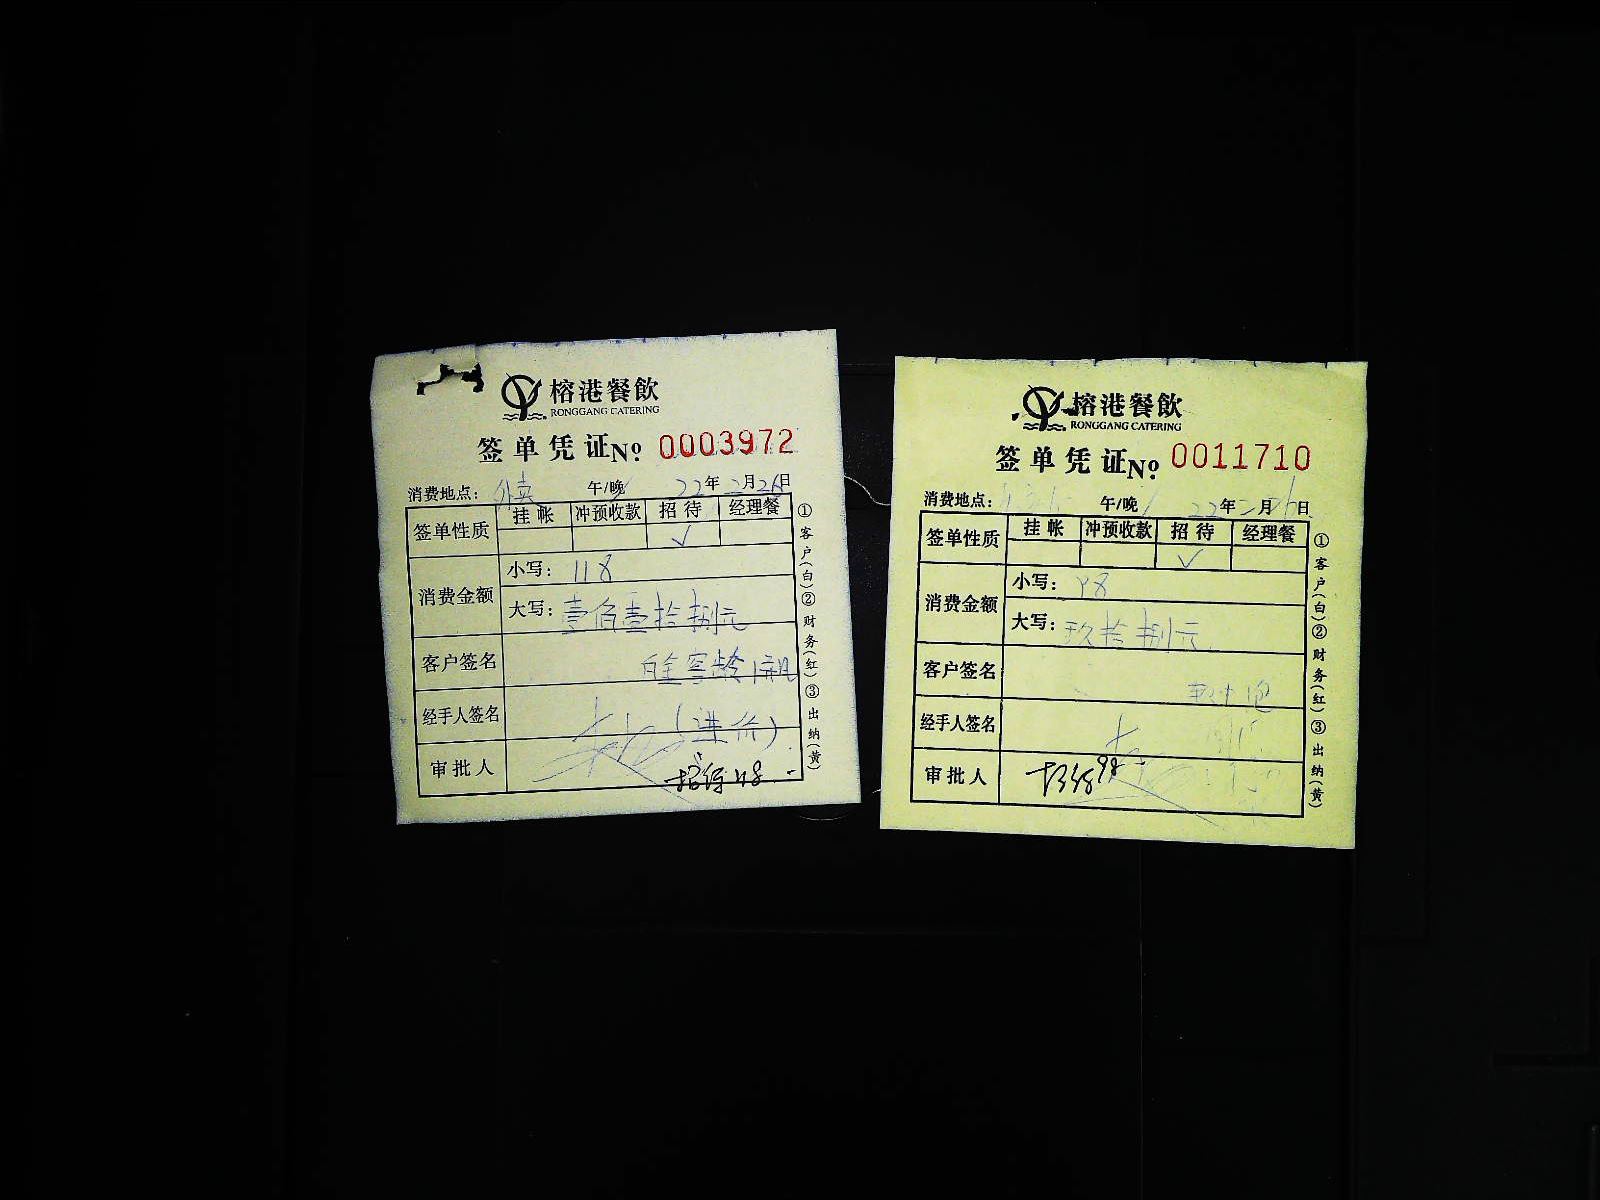 榕港餐飲
RONGGANG CATERING
签单凭证No. 0003972
消费地点：外卖 午/晚 22年2月26日
签单性质 挂帐 冲预收款 招待 经理餐
✓
消费金额 小写：118
大写：壹佰壹拾捌元
客户签名 白金窖龄1瓶
经手人签名 (进价)
审批人 招待118
①客户(白)②财务(红)③出纳(黄)
榕港餐飲
RONGGANG CATERING
签单凭证No. 0011710
消费地点： 午/晚 22年2月26日
签单性质 挂帐 冲预收款 招待 经理餐
✓
消费金额 小写：98
大写：玖拾捌元
客户签名
经手人签名
审批人 招待98
①客户(白)②财务(红)③出纳(黄)